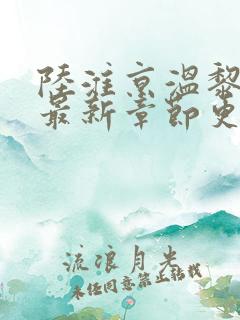 陸淮京溫黎
最新章節更
流浪月半
未经同意禁止转载